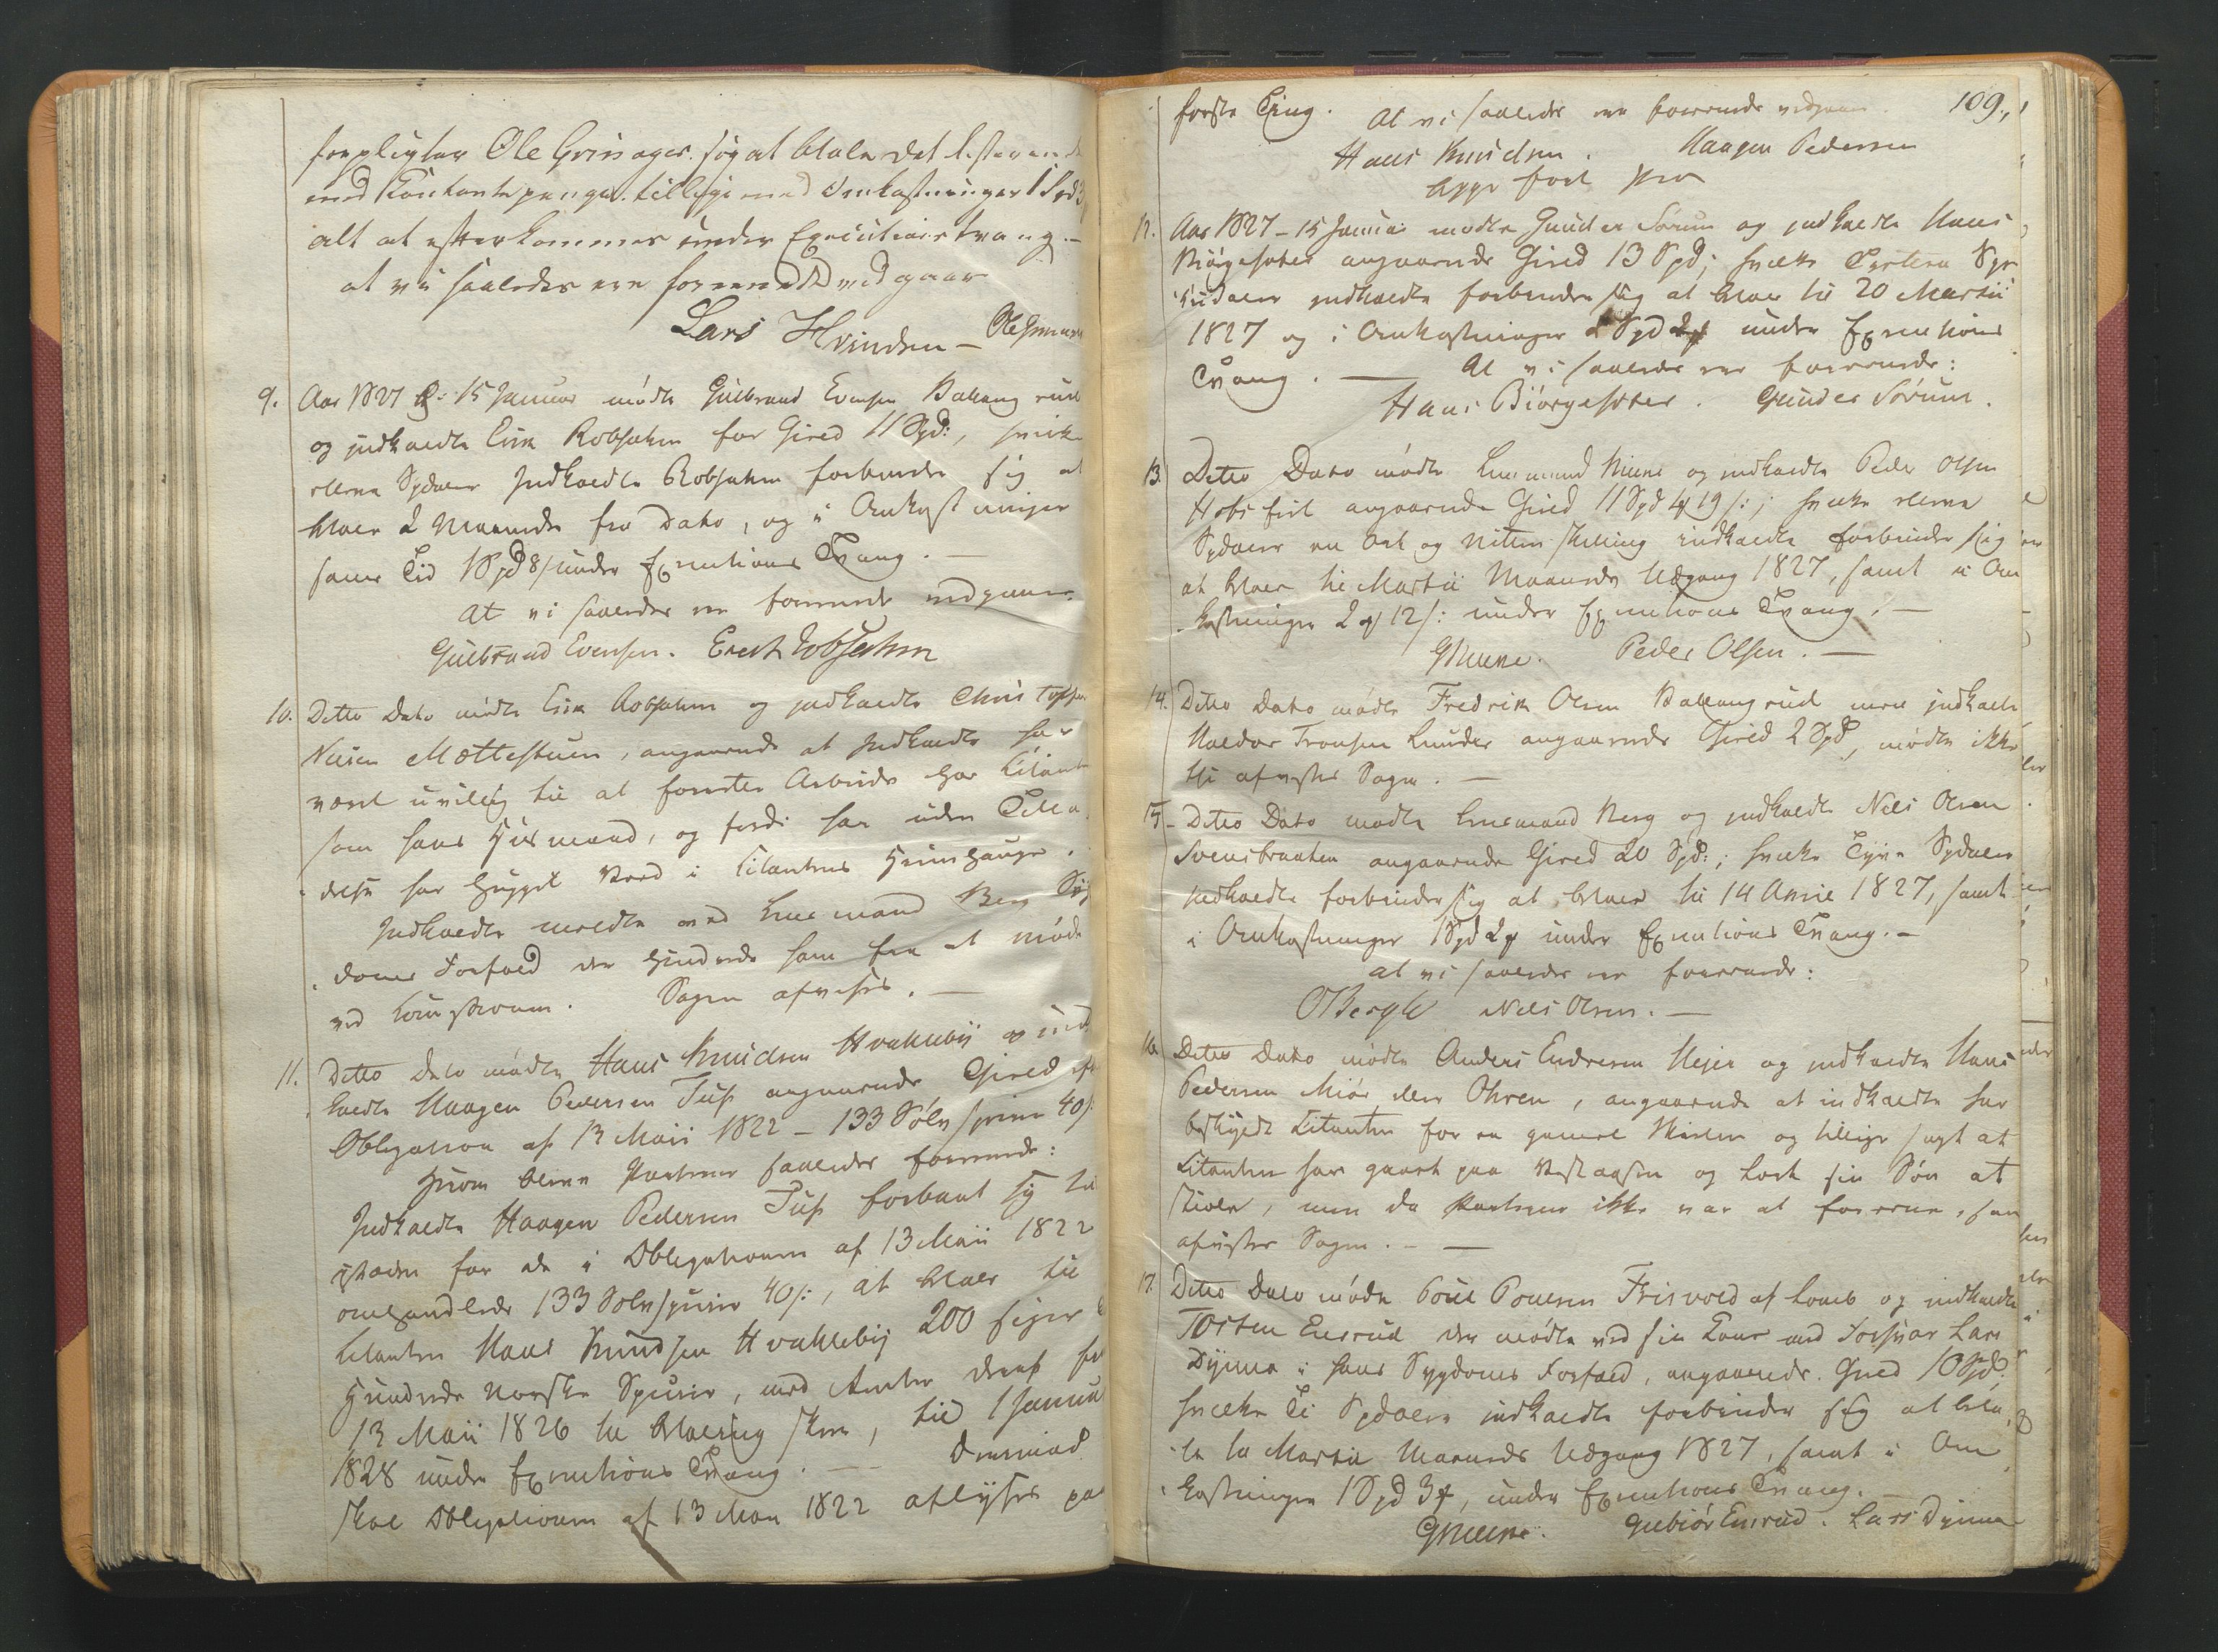 forpligter Ole Grinager sig at betale det resterende
med Contante penge tillige med Omkostninger 1 Spd 3
alt at efterkommes under Executions tvang.-
at vi saaledes ere foreenede vedgaar
Lars Hvinden -
9. Aar 1827 d: 15 Januar mødte Gulbrand Evensen Ballangrud
og indkaldte Erik Robsahm for Gield 11 Spd:, hvilke
elleve Spdaler Indkaldte Robsahm forbinder sig at
betale 2 Maaneder fra Dato, og i Omkostninger
samme Tid 1 Spd 8 s under Executions Tvang.-
At vi saaledes ere foreenede vedgaaer
Gulbrand Evensen. Erich Robsahm
10. Ditto Dato mødte Erik Robsahm og indkaldte Christopher
Nielsen Mættestuen, angaaende at Indkaldte har
været uvillig til at forrette Arbeide hos Citanten
som hans Huusmand, og fordi han uden Tilla-
delse har hugget Veed i Citantens Hiemhauge.
Indkaldte meldte med Lensmand Berg Syg-
doms Forfald der hindrede ham fra at møde
ved Commissionen. Sagen afvises.-
11. Ditto Dato mødte Hans Knudsen Hvalebÿ og ind-
kaldte Haagen Pedersen Tuf angaaende Gield efter
Obligation af 13 Maii 1822 - 133 Sølv specier 40 s:
hvorom bleve Parterne saaledes foreenede:
Indkaldte Haagen Pedersen Tuf forbandt sig til
istæden for de i Obligationen af 13 Maii 1822
omhandlede 133 Sølvspecier 40 s:, at betale til
Citanten Hans Knudsen Hvalebÿ 200 siger to
Hundrede Norske Specier, med Renter deraf fra
13 Maii 1826 til Betaling skeer, til 1 Januar
1828 under Executions Tvang. - Derimod
skal Obligationen af 13 Maii 1822 aflyses paa
109.
første Ting. At vi saaledes ere foreenede vedgaaer
Hans Knudsen. Haagen Pedersen
12. Aar 1827 - 15 Januar mødte Gunder Sørum og indkaldte Hans
Biørgeseter angaaende Gield 13 Spd; hvilke Tretten Spe-
ciedaler indkaldte forbinder sig at betale til 20 Martii
1827 og i Omkostninger Spd 2 under Executions
Tvang. - At vi saaledes ere foreenede:
Hans Biörgeseter. Gunder Sörum.
13. Ditto Dato mødte Lensmand Kiens og indkaldte Peder Olsen
angaaende Gield 11 Spd 19 s:; hvilke elleve
Spdaler en Ort og nitten skilling indkaldte forbinder sig
at betale til Martii Maaneds Udgang 1827, samt i Om-
kostninger 2 12 s: under Executions Tvang.-
Peder Olsen.-
14. Ditto Dato mødte Fredrik Olsen Ballangrud men indkaldte
Haldor Tronsen Lunder angaaende Gield 2 Spd, mødte ikke
thi afvistes Sagen.-
15. Ditto Dato mødte Lensmand Berg og indkaldte Niels Olsen
Svensbraaten angaaende Gield 20 Spd:; hvilke Tyve Spdaler
indkaldte forbinder sig at betale til 14 April 1827, samt
i Omkostninger 1 Spd 2 under Executions Tvang.-
at vi saaledes ere foreenede:
OBergh Niels Olsen.-
16. Ditto Dato mødte Anders Endresen Heier og indkaldte Hans
Pedersen eller Ohren, angaaende at indkaldte har
beskyldt Citanten for en gammel og tillige sagt at
Citanten har gaaet paa og lært sin Søn at
stiele, men da Parterne ikke var at foreene, saa
afvistes Sagen.-
17. Ditto Dato mødte Poul Poulsen Frisvold af Lomb og indkaldte
Torsten Enerud der mødte ved sin Kone med Forsvar Lars
Dÿnna i hans Sygdoms Forfald, angaaende Gield 10 Spd:
hvilke Ti Spdaler indkaldte forbinder sig at beta-
le til Martii Maaneds Udgang 1827, samt i Om-
kostninger 1 Spd 3, under Executions Tvang.
Gubiör Enerud. Lars Dynna